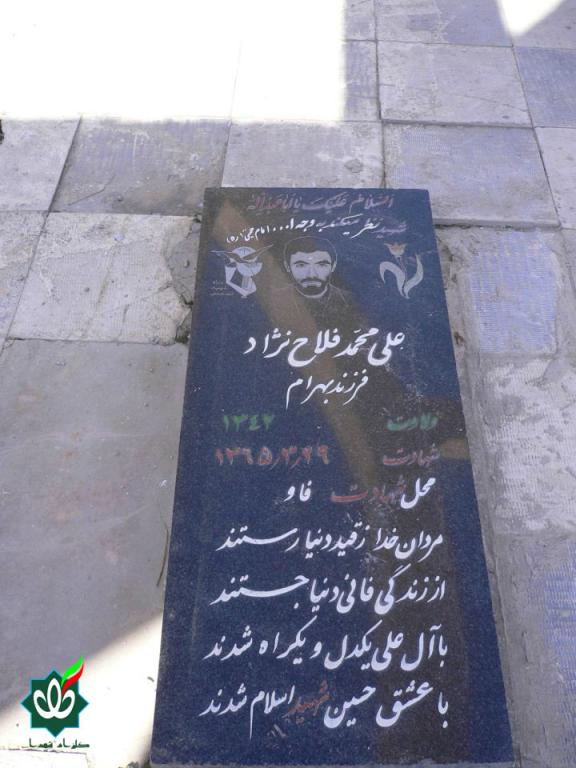 السلام علیک یا اباعبدالله
شهید نظر میکند به وجه ا... امام خمینی (ره)
علی محمد فلاح نژاد
فرزند بهرام
ولادت ۱۳۴۲
شهادت ۱۳۶۵/۳/۲۹
محل شهادت فاو
مردان خدا ز قید دنیا رستند
از زندگی فانی دنیا جستند
با آل علی یکدل و یکراه شدند
با عشق حسین شهید اسلام شدند